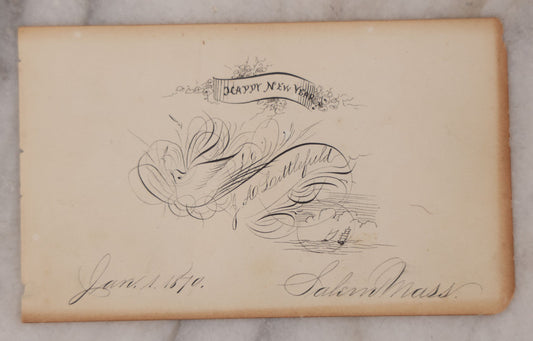 HAPPY NEW YEAR.
Littlefield
Jan. 1. 1870.
Salem Mass.